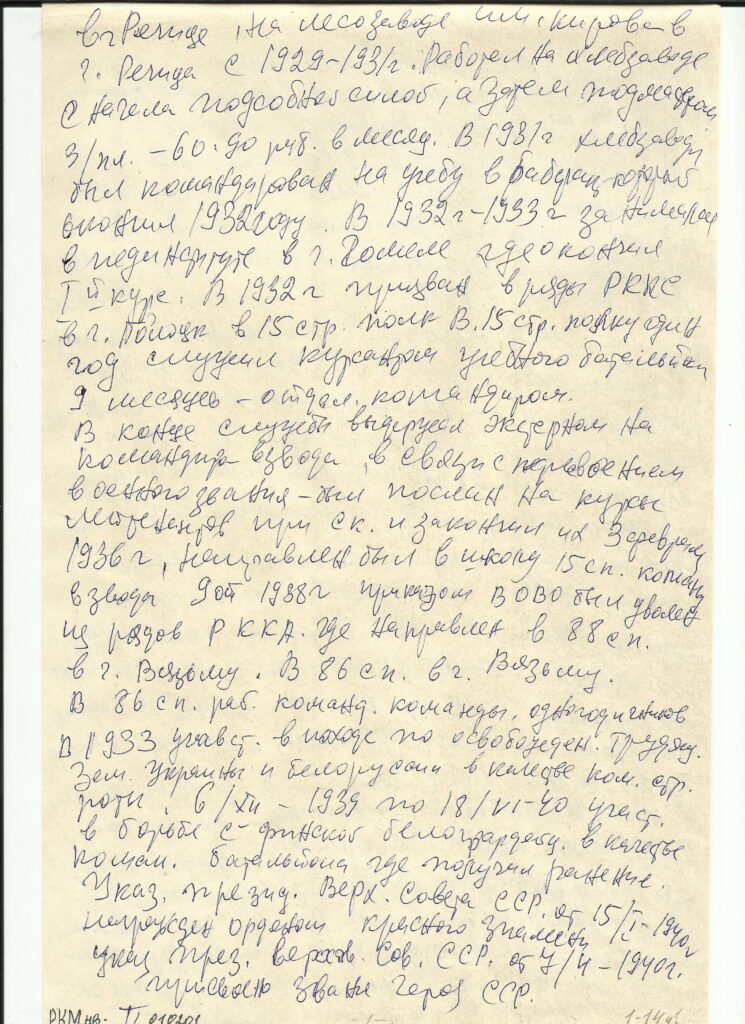 в г Речице, на лесозаводе им. Кирова в
г. Речица с 1929-1931г. Работал на хлебзаводе
с начела подсобной силой, а затем подмастером
з/пл. - 60. 90 руб. в месяц. В 1931г хлебзаводом
был командирован на учебу в который
окончил 1932 году. В 1932г-1933г занимался
в пединституте в г. Гомеле где окончил
I й курс. В 1932г призван в ряды РККА
в г. Полоцк в 15 стр. полк В. 15 стр. полку один
год служил курсантом учебного батальона
9 месяцев - отдел. командиром.
В конце службы выдержал экстерном на
командира взвода, в связи с присвоением
военного звания - был послан на курсы
лейтенантов при ск. и закончил их 3 февраля
1936г, направлен был в школу 15 сп. команд
взвода 1938г приказом БОВО был уволен
из рядов РККА. где направлен в 88 сп.
в г. Вязьму. В 86 сп. в г. Вязьму.
В 86 сп. раб. команд. команды. одногодичников
В 1933 участ. в походе по освобожден. трудящ.
Зап. Украины и Белоруссии в качестве ком. стр.
роты. 6/XII - 1939 по 18/VI-40 участ.
в борьбе с финской белогвардейц. в качестве
коман. батальона где получил ранение.
Указ. презид. Верх. Совета ССР. от 15/I-1940г
награжден орденом красного знамени
указ през. верхов. Сов. ССР. от 7/4-1940г.
присвоено звание Героя ССР.
РКМ нв- II
1-14